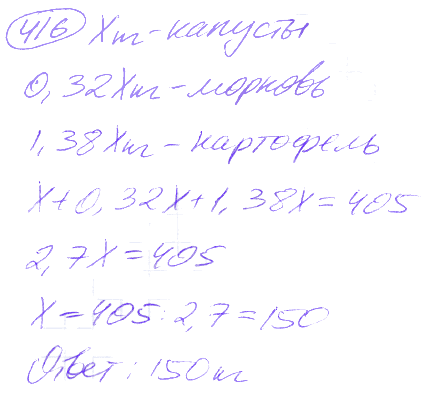 416 Xт - капусты
0,32Xт - морковь
1,38Xт - картофель
X+0,32X+1,38X=405
2,7X=405
X=405:2,7=150
Ответ: 150т